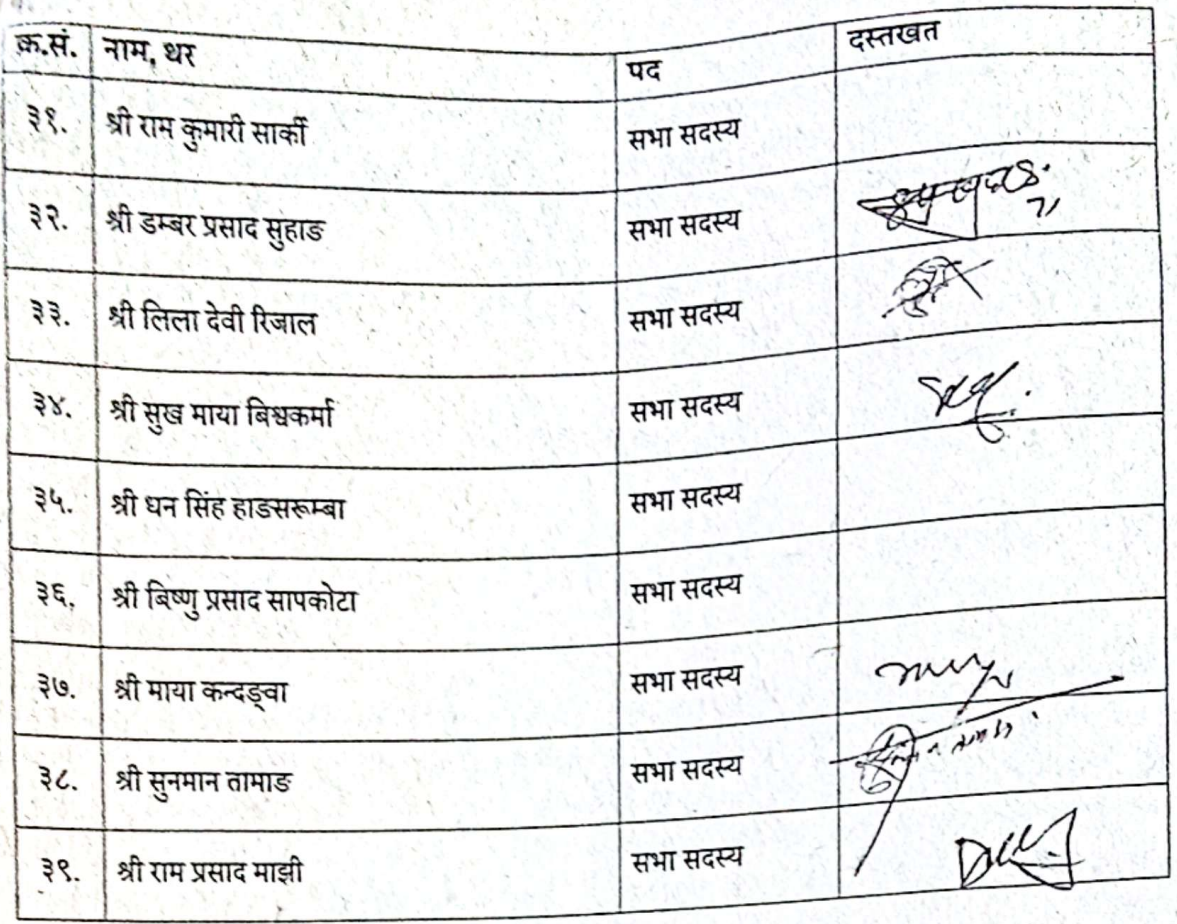 क्र.सं. नाम, थर पद दस्तखत
३१. श्री राम कुमारी सार्की सभा सदस्य
३२. श्री डम्बर प्रसाद सुहाङ सभा सदस्य
३३. श्री लिला देवी रिजाल सभा सदस्य
३४. श्री सुख माया बिश्वकर्मा सभा सदस्य
३५. श्री धन सिंह हाङसरूम्बा सभा सदस्य
३६. श्री बिष्णु प्रसाद सापकोटा सभा सदस्य
३७. श्री माया कन्दङ्वा सभा सदस्य
३८. श्री सुनमान तामाङ सभा सदस्य
३९. श्री राम प्रसाद माझी सभा सदस्य